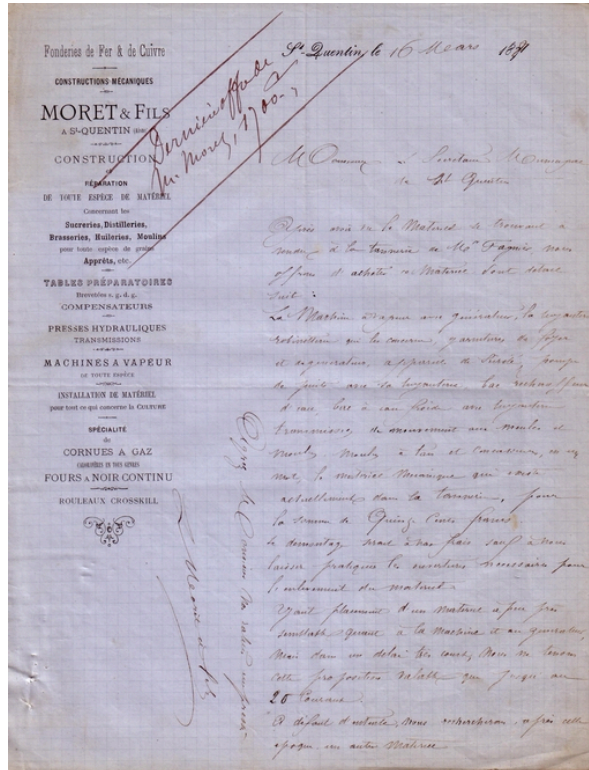 Fonderies de Fer & de Cuivre
CONSTRUCTIONS MÉCANIQUES
MORET & FILS
A St-QUENTIN
CONSTRUCTION
RÉPARATION
DE TOUTE ESPÈCE DE MATÉRIEL
Concernant les
Sucreries, Distilleries,
Brasseries, Huileries, Moulins
pour toute espèce de grains
Apprêts, etc.
TABLES PRÉPARATOIRES
Brevetées s. g. d. g.
COMPENSATEURS
PRESSES HYDRAULIQUES
TRANSMISSIONS
MACHINES A VAPEUR
DE TOUTE ESPÈCE
INSTALLATION DE MATÉRIEL
pour tout ce qui concerne la CULTURE
SPÉCIALITÉ
de
CORNUES A GAZ
CALORIFÈRES EN TOUS GENRES
FOURS A NOIR CONTINU
ROULEAUX CROSSKILL
Dernière offre de
M. Moret, 1700
St-Quentin, le 16 Mars 18
Monsieur le Secrétaire
de St Quentin
Après avoir vu le Matériel se trouvant à
vendre à la tannerie de nous
offrons d'acheter ce Matériel dont détail
suit :
La Machine à vapeur avec générateur, la tuyauterie
robinetterie qui les concerne, garnitures de foyer
et de générateur, appareils de sûreté, pompe
de puits avec sa tuyauterie, bac réchauffeur
bac à eau froide avec tuyauterie
transmission de mouvement aux meules et
moulin à tan et concasseur, en un
mot, le matériel mécanique qui existe
actuellement dans la tannerie, pour
la somme de Quinze Cents francs.
Le démontage serait à nos frais sauf à nous
laisser pratiquer les ouvertures nécessaires pour
l'enlèvement du matériel.
Ayant placement d'un matériel à peu près
semblable quant à la machine et au générateur,
mais dans un délai très court, nous ne tenons
cette proposition valable que jusqu'au
20 Courant.
A défaut d'entente, nous rechercherons, après cette
époque un autre Matériel